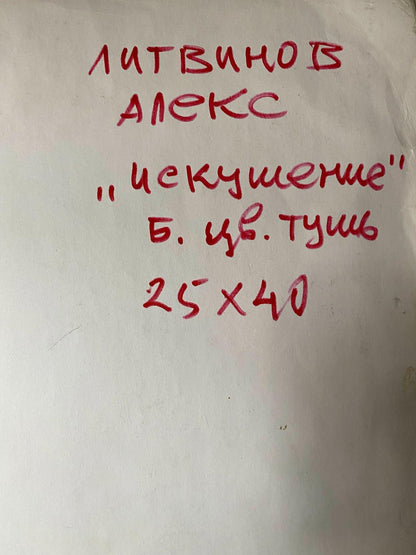 ЛИТВИНОВ
АЛЕКС
„искушение"
Б. цв. тушь
25 X 40